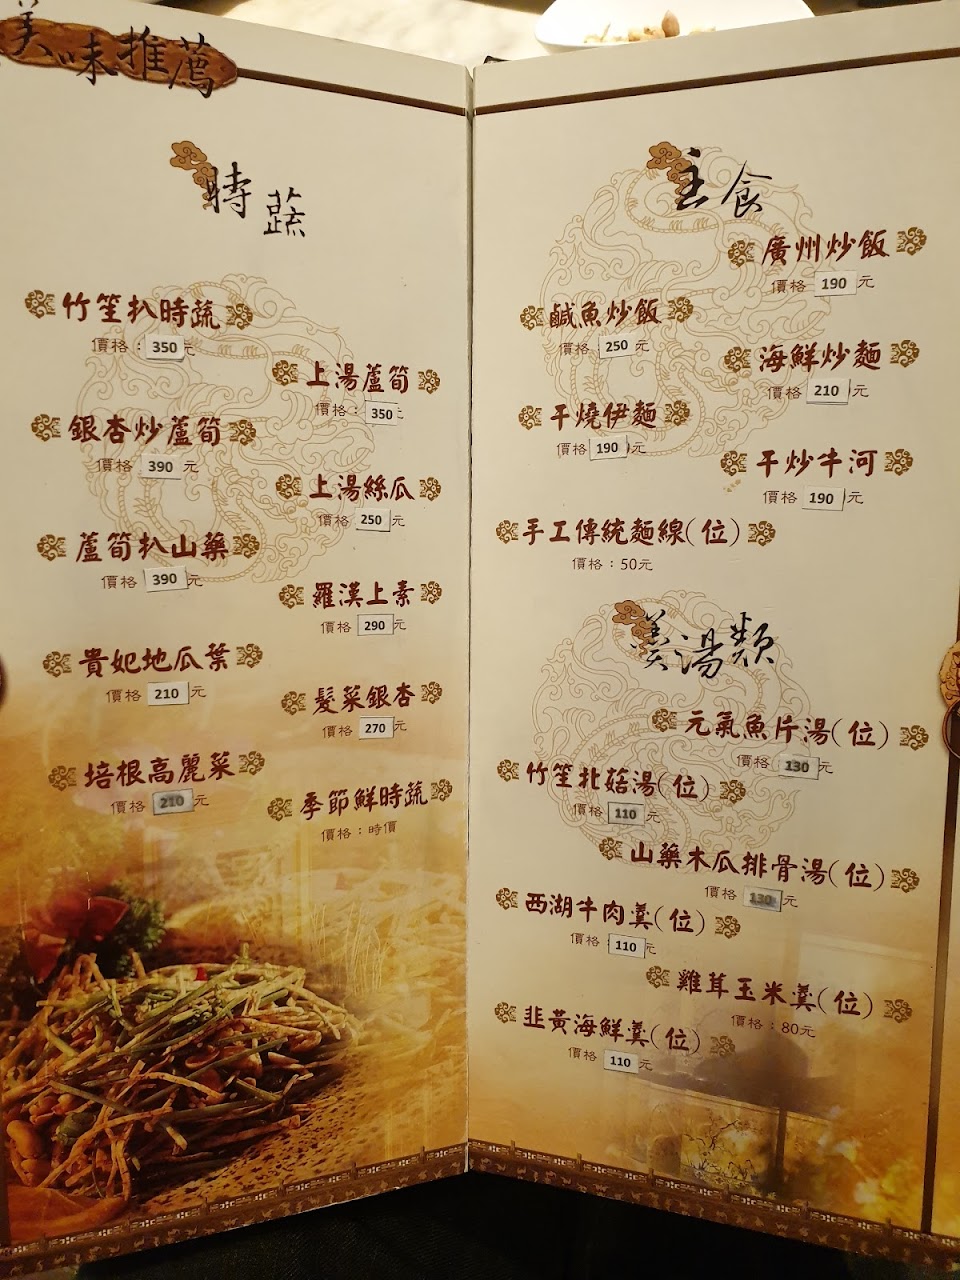 美味推薦
時蔬
竹笙扒時蔬
價格：350元
上湯蘆筍
價格：350
銀杏炒蘆筍
價格 390 元
上湯絲瓜
價格 250元
蘆筍扒山藥
價格 390 元
羅漢上素
價格 290元
貴妃地瓜葉
價格 210 元
髮菜銀杏
價格 270元
培根高麗菜
價格 210元
季節鮮時蔬
價格：時價
主食
廣州炒飯
價格 190 元
鹹魚炒飯
價格 250元
海鮮炒麵
價格 210 元
干燒伊麵
價格 190 元
干炒牛河
價格 190 元
手工傳統麵線(位)
價格：50元
羹湯類
元氣魚片湯(位)
價格 130 元
竹笙北菇湯(位)
價格 110 元
山藥木瓜排骨湯(位)
價格 130元
西湖牛肉羹(位)
價格 110元
雞茸玉米羹(位)
價格：80元
韭黃海鮮羹(位)
價格 110 元